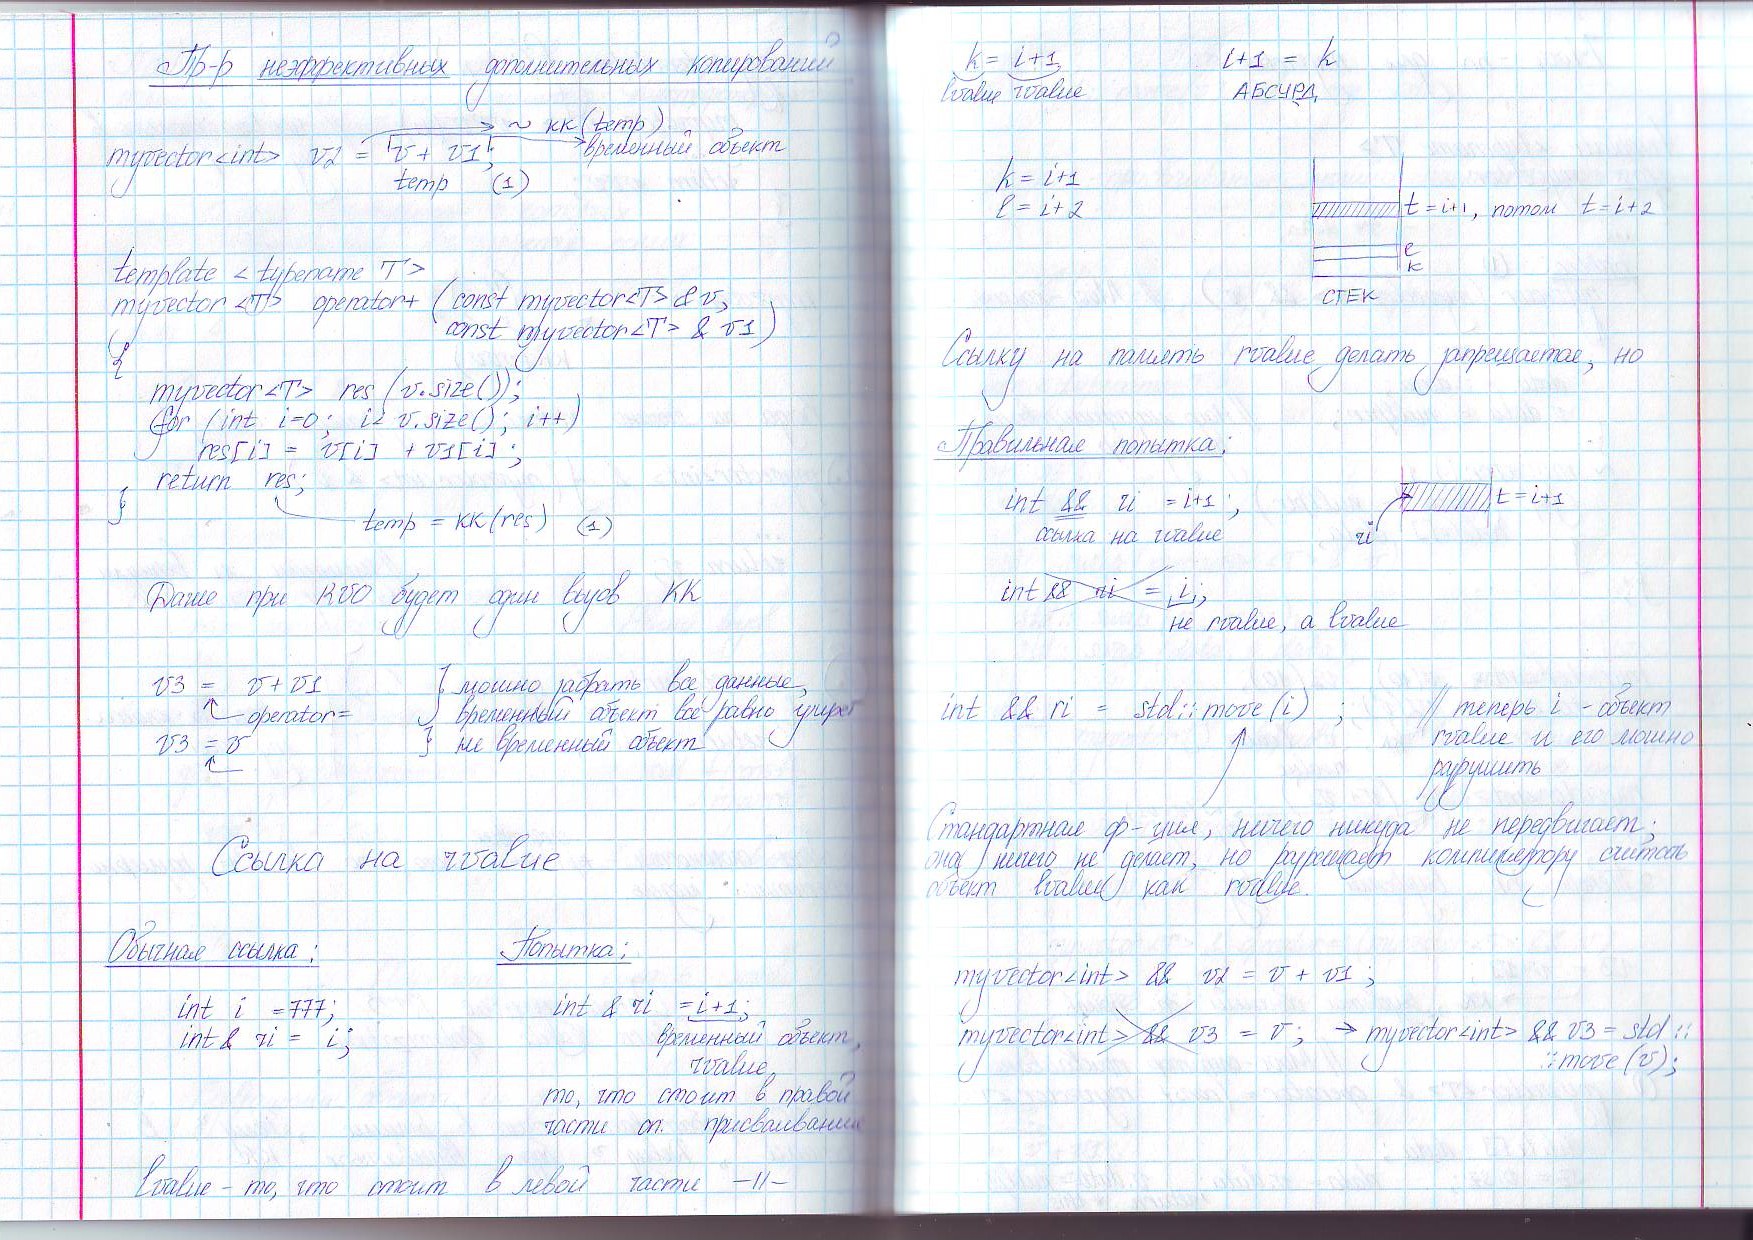 Пр-р неэффективных дополнительных копирований
~ КК(temp)
myvector<int> v2 = v + v1; временный объект
temp (1)
template <typename T>
myvector<T> operator+ (const myvector<T> & v,
const myvector<T> & v1)
{
myvector<T> res (v.size());
for (int i=0; i< v.size(); i++)
res[i] = v[i] + v1[i];
return res;
}
temp = КК(res) (1)
Даже при RVO будет один вызов КК
v3 = v+v1 } можно забрать все данные,
operator= временный объект все равно умрет
v3 = v } не временный объект
Ссылка на rvalue
Обычная ссылка: Попытка:
int i =777; int & ri = i+1;
int& ri = i; временный объект,
rvalue,
то, что стоит в правой
части оп. присваивания
lvalue - то, что стоит в левой части -//-
k = i+1, i+1 = k
lvalue rvalue АБСУРД
k = i+1
l = i+2 t=i+1, потом t=i+2
l
k
СТЕК
Ссылку на память rvalue делать запрещается, но
Правильная попытка:
int && ri = i+1; t=i+1
ссылка на rvalue ri
int && ri = i;
не rvalue, а lvalue
int && ri = std::move(i) ; // теперь i - объект
rvalue и его можно
// разрушить
Стандартная ф-ция, ничего никуда не передвигает;
она ничего не делает, но разрешает компилятору считать
объект lvalue как rvalue.
myvector<int> && v2 = v + v1 ;
myvector<int> && v3 = v; → myvector<int> && v3 = std::
::move(v);